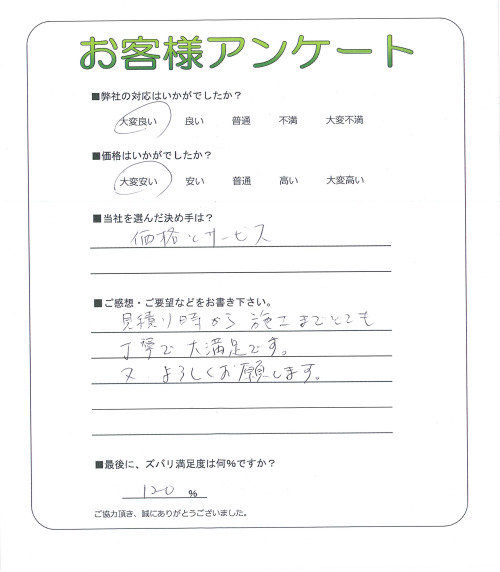 お客様アンケート
■弊社の対応はいかがでしたか？
大変良い 良い 普通 不満 大変不満
■価格はいかがでしたか？
大変安い 安い 普通 高い 大変高い
■当社を選んだ決め手は？
価格とサービス
■ご感想・ご要望などをお書き下さい。
見積り時から施工までとても
丁寧で大満足です。
又、よろしくお願します。
■最後に、ズバリ満足度は何%ですか？
120 %
ご協力頂き、誠にありがとうございました。